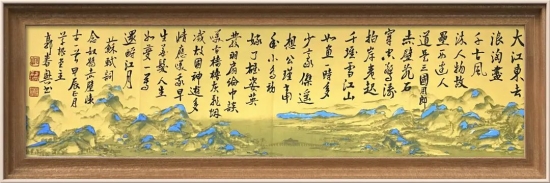 大江東去
浪淘盡
千古風
流人物故
壘西邊人
道是三國周郎
赤壁亂石
穿空驚濤
拍岸卷起
千堆雪江山
如畫一時多
少豪傑遙
想公瑾當
年小喬初
嫁了雄姿英
發羽扇綸巾談
笑間檣櫓灰飛煙
滅故國神遊多
情應笑我早
生華髮人生
如夢一尊
還酹江月
蘇軾詞
念奴嬌赤壁懷
古一首甲辰正月